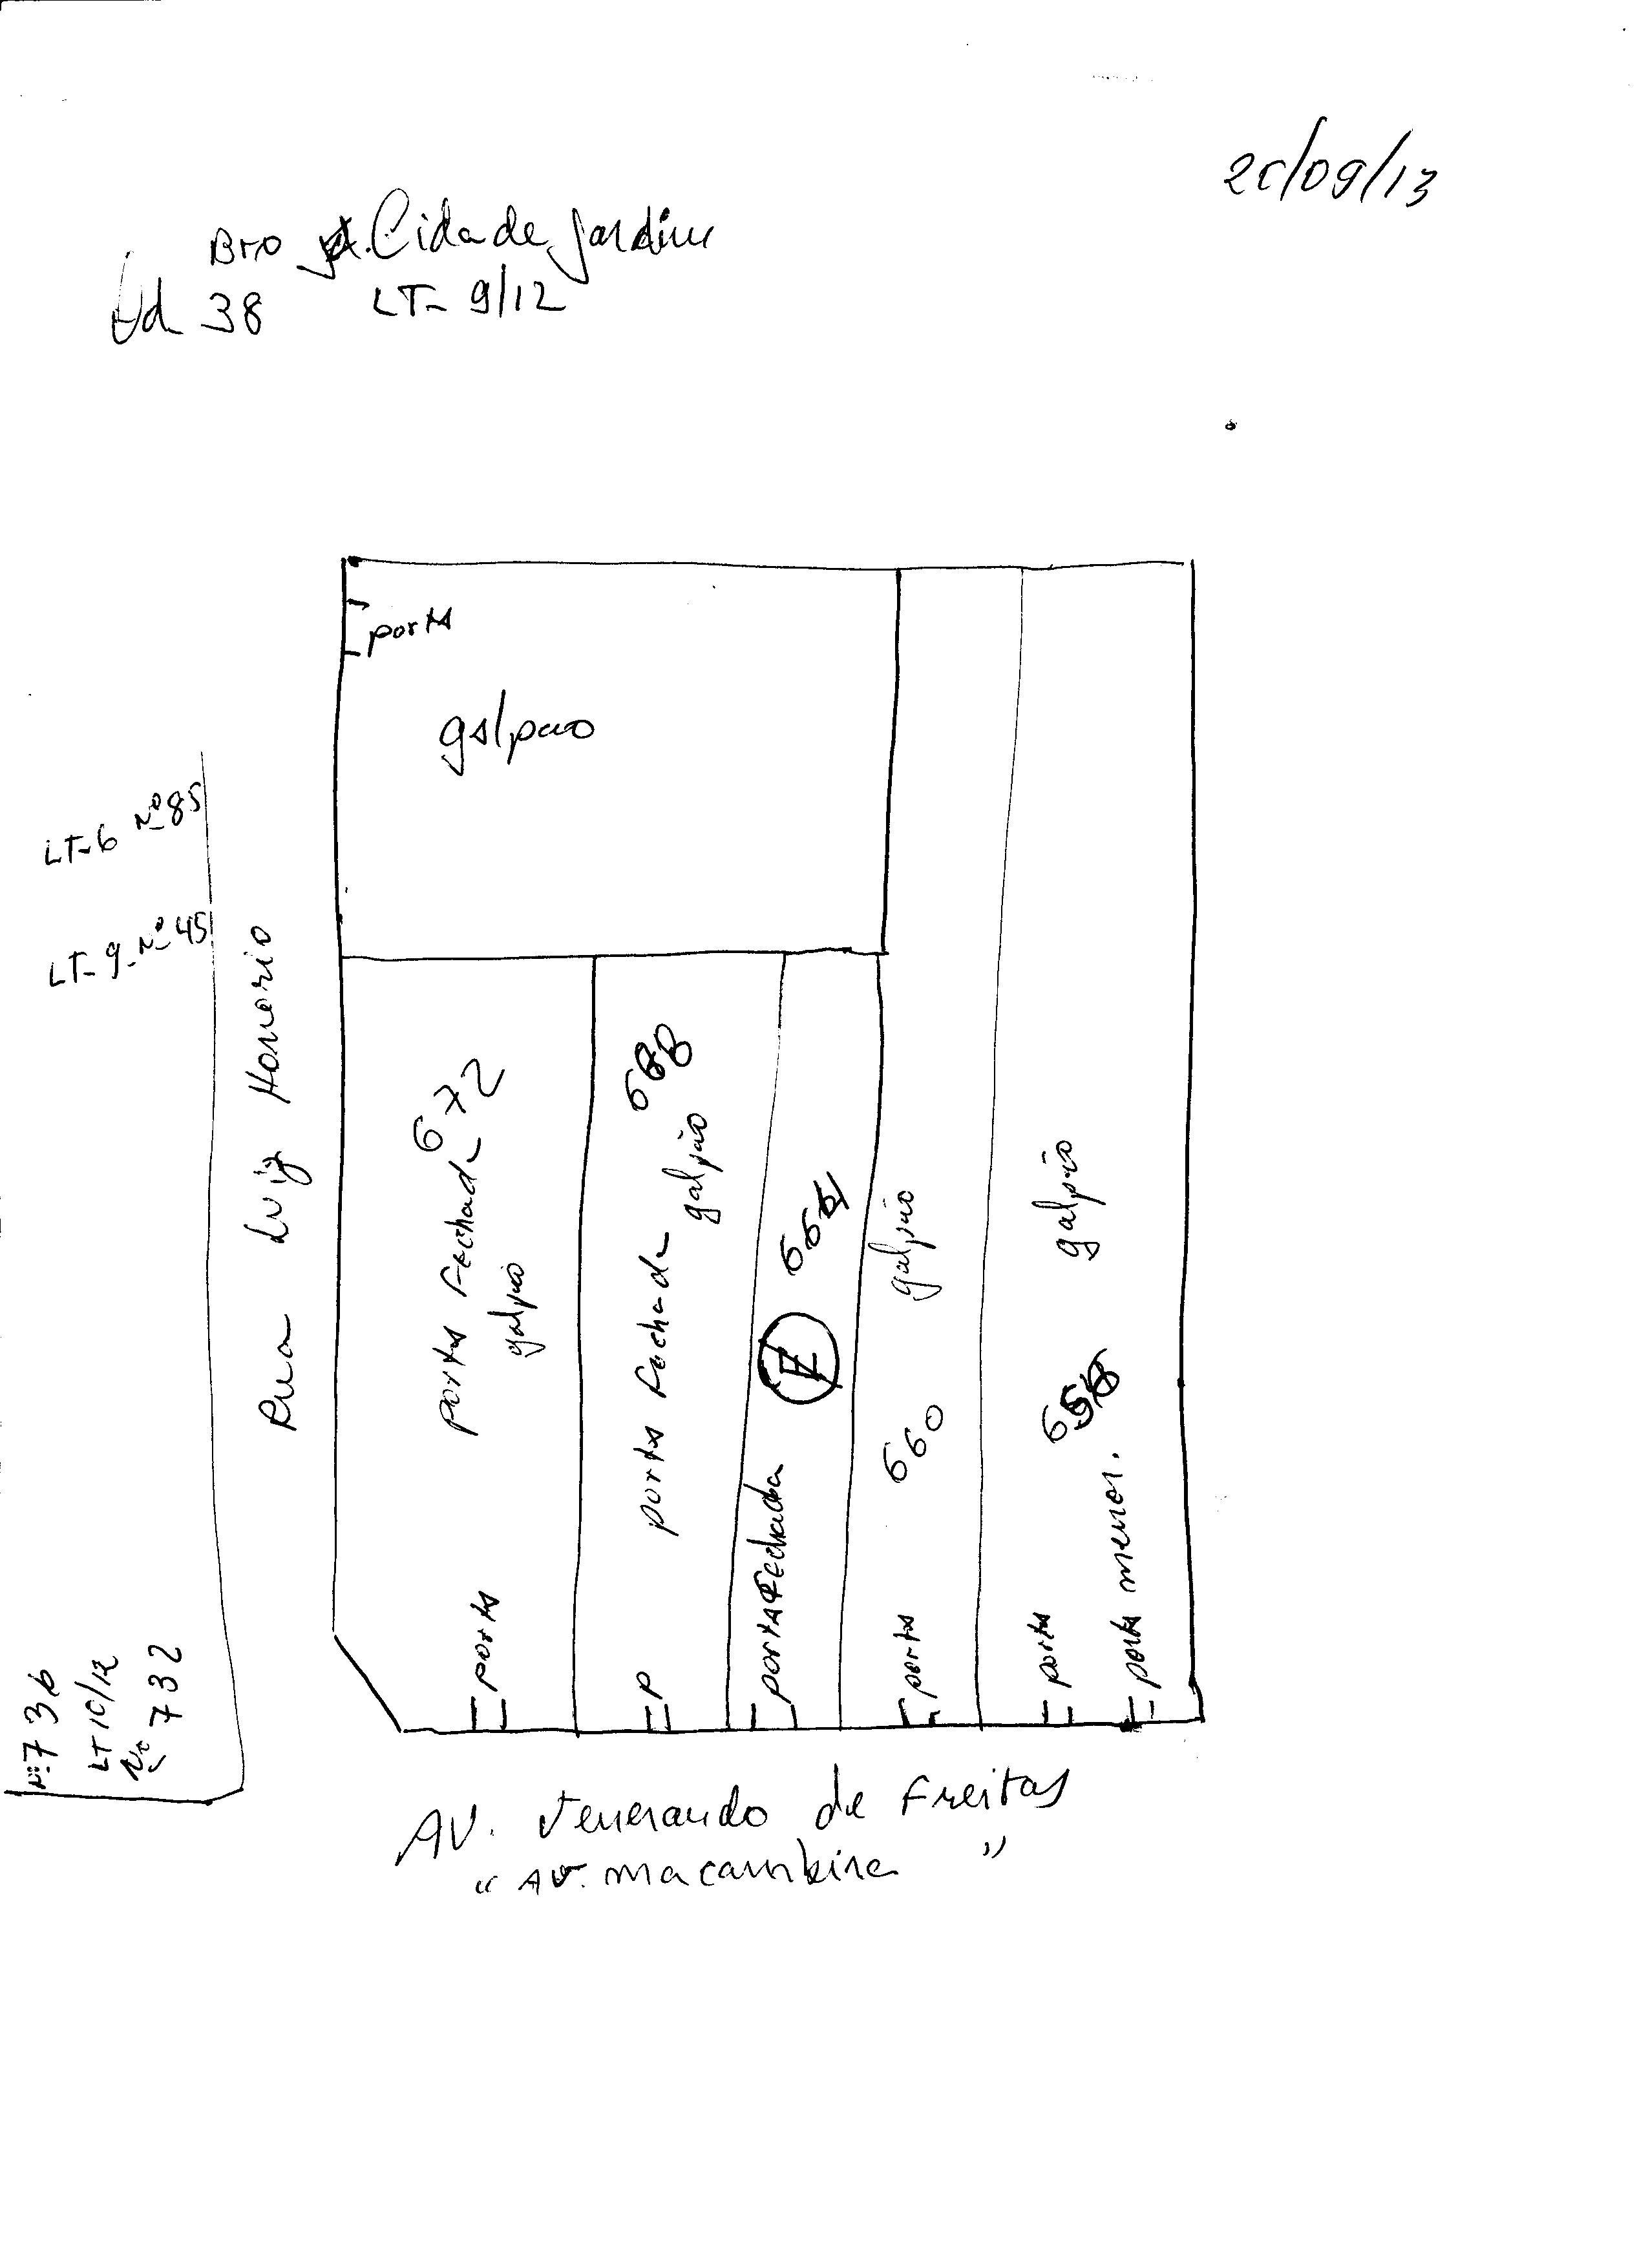 20/09/13
Bro Jd. Cidade Jardim
Qd 38 LT- 9/12
porta
galpao
LT-6 Nº 85
LT-9- Nº 45
Rua Luiz Honorio
672
porta fechada
galpão
porta
668
porta fechada
galpão
P
664
porta fechada
galpão
660
porta
galpão
porta
porta menor.
Nº 736
LT 10/12
Nº 732
AV. Venerando de Freitas
"AV. macambira "